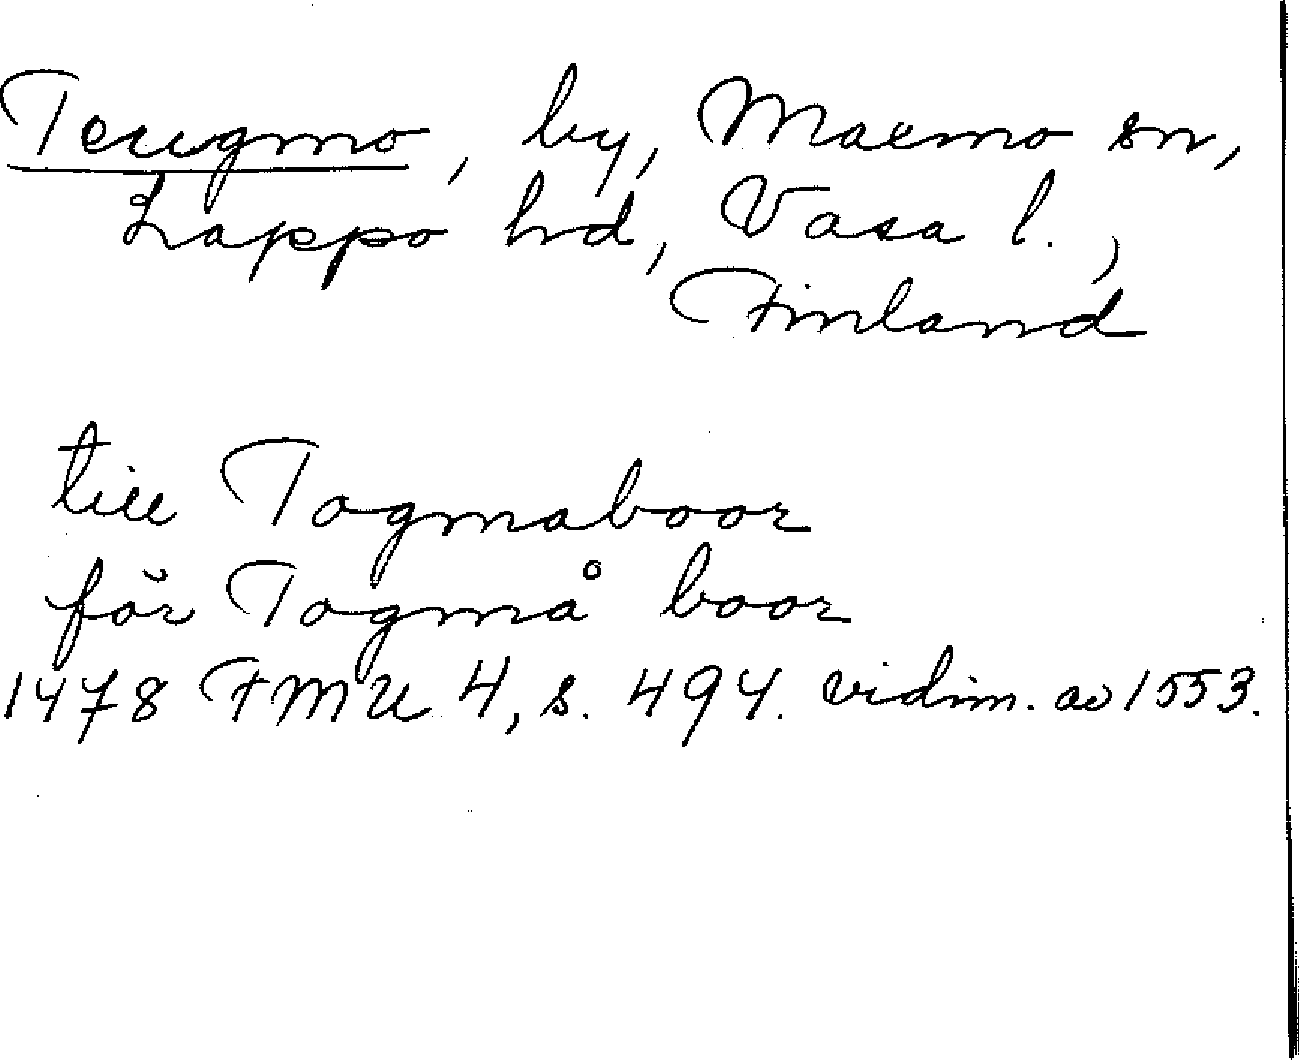 Teugmo, by, Maxmo sn,
Lappo hd, Vasa l.,
Finland
till Togmaboor
för Togmå boor
1478 FMU 4, s. 494. vidim. av 1553.